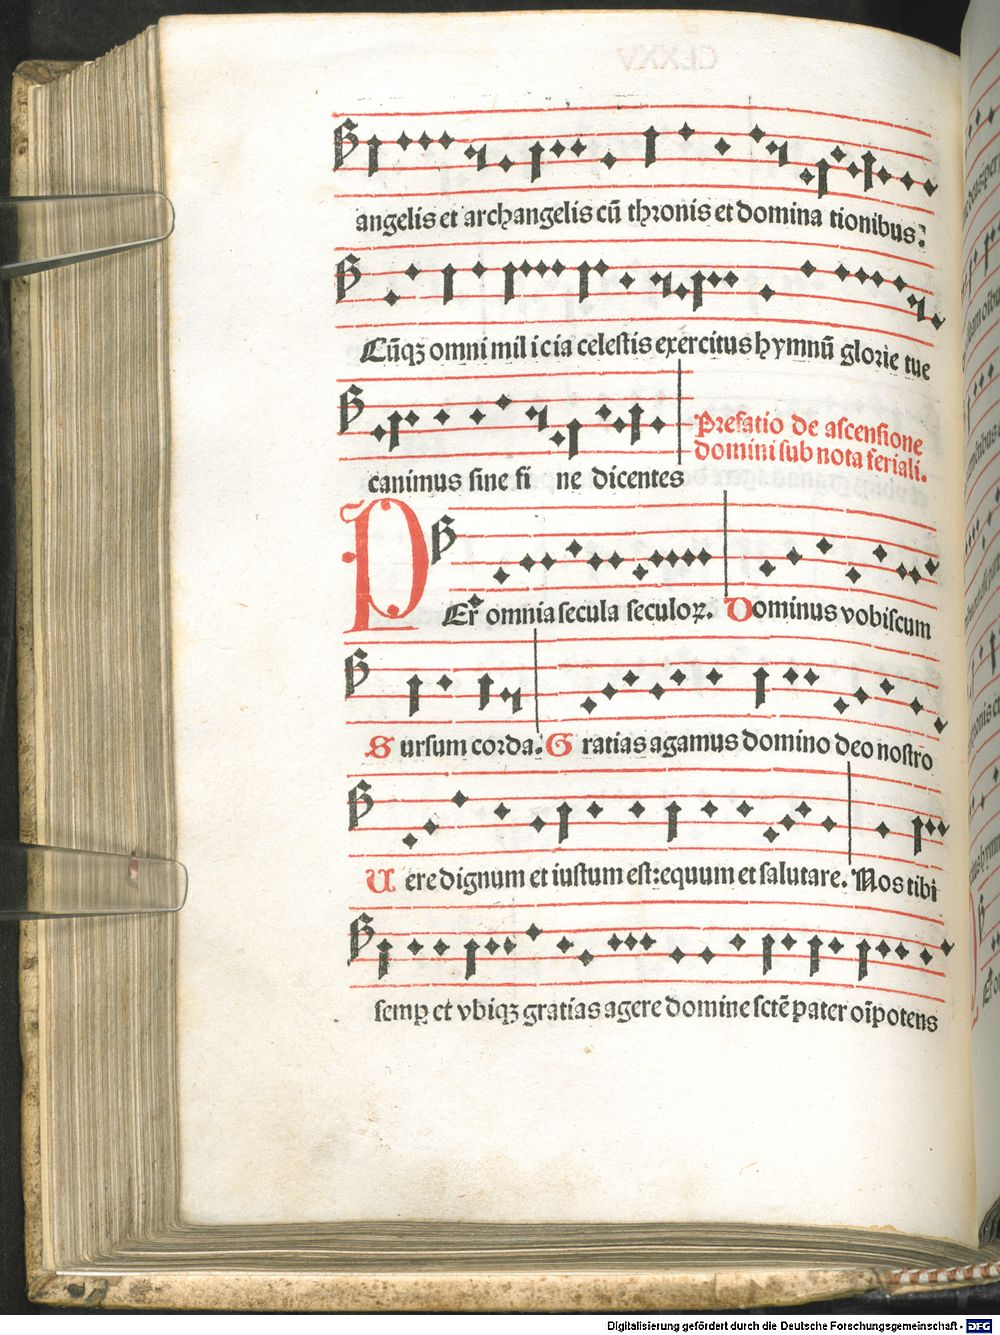 angelis et archangelis cū thronis et domina tionibus.
Cūqʒ omni mil i cia celestis exercitus hymnū glorie tue
canimus sine fi ne dicentes
Prefatio de ascensione
domini sub nota feriali.
PEr omnia secula seculoꝝ. Dominus vobiscum
Sursum corda. Gratias agamus domino deo nostro
Uere dignum et iustum est: equum et salutare. Nos tibi
semꝑ et vbiqʒ gratias agere domine sctē pater oīpotens
Digitalisierung gefördert durch die Deutsche Forschungsgemeinschaft - DFG